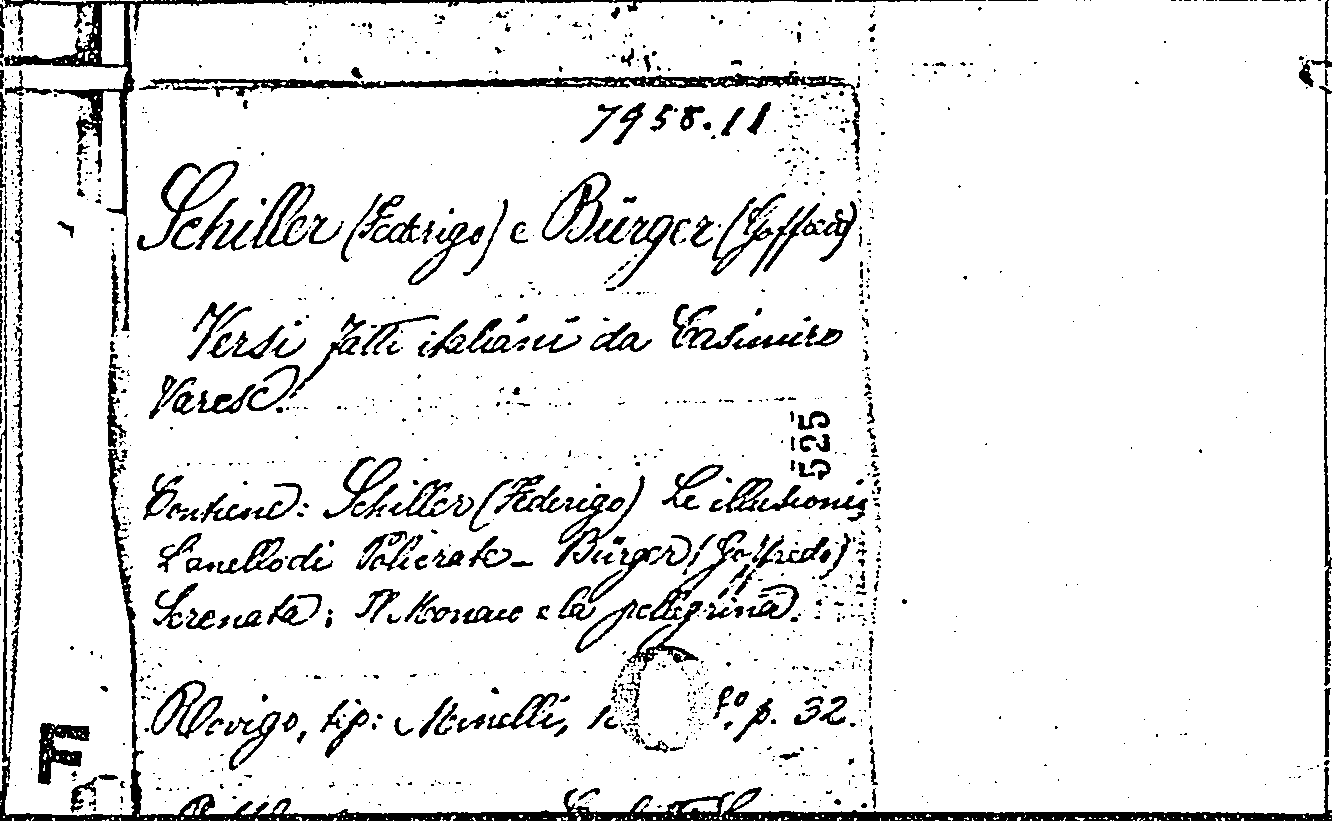 7958.11
Schiller (Federigo) e Bürger (Goffredo)
Versi fatti italiani da Casimiro
Varese.
525
Contiene: Schiller (Federigo) Le illusioni;
L'anello di Policrate - Bürger (Goffredo)
Serenata; Il Monaco e la pellegrina.
Rovigo, tip: Minelli, p. 32.
F